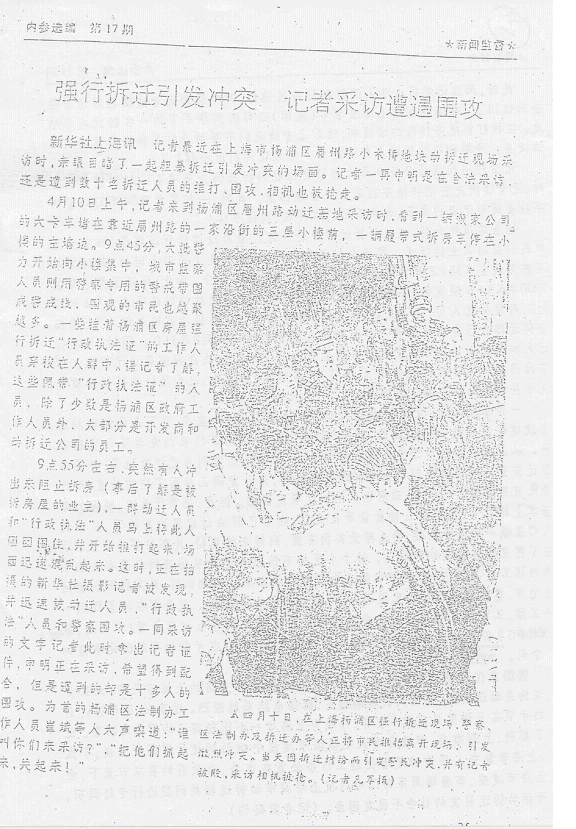 内参选编 第17期
☆新闻监督☆
强行拆迁引发冲突 记者采访遭遇围攻
新华社上海讯 记者最近在上海市杨浦区眉州路小木桥地块动拆迁现场采
访时,亲眼目睹了一起粗暴拆迁引发冲突的场面。记者一再申明是在合法采访,
还是遭到数十名拆迁人员的推打、围攻,相机也被抢走。
4月10日上午,记者来到杨浦区眉州路动迁基地采访时,看到一辆搬家公司
的大卡车堵在靠近眉州路的一家沿街的三层小楼前,一辆履带式拆房车停在小
楼的主墙边。9点45分,大批警
力开始向小楼集中,城市监察
人员则用警察专用的警戒带围
成警戒线,围观的市民也越聚
越多。一些挂着杨浦区房屋强
行拆迁“行政执法证”的工作人
员穿梭在人群中。据记者了解,
这些佩带“行政执法证”的人
员,除了少数是杨浦区政府工
作人员外,大部分是开发商和
动拆迁公司的员工。
9点55分左右,突然有人冲
出来阻止拆房(事后了解是被
拆房屋的业主),一群动迁人员
和“行政执法”人员马上将此人
团团围住,并开始推打起来,场
面迅速混乱起来。这时,正在拍
摄的新华社摄影记者被发现,
并迅速被动迁人员、“行政执
法”人员和警察围攻。一同采访
的文字记者此时拿出记者证
件,申明正在采访,希望得到配
合,但是遭到的却是十多人的
围攻。为首的杨浦区法制办工
作人员崔斌等人大声嚷道:“谁
叫你们来采访?”,“把他们抓起
来,关起来!”
四月十日,在上海杨浦区强行拆迁现场,警察、
区法制办及拆迁办等人正将市民推搡离开现场,引发
激烈冲突。当天因拆迁纠纷而引发警民冲突,并有记者
被殴,采访相机被抢。(记者 摄)